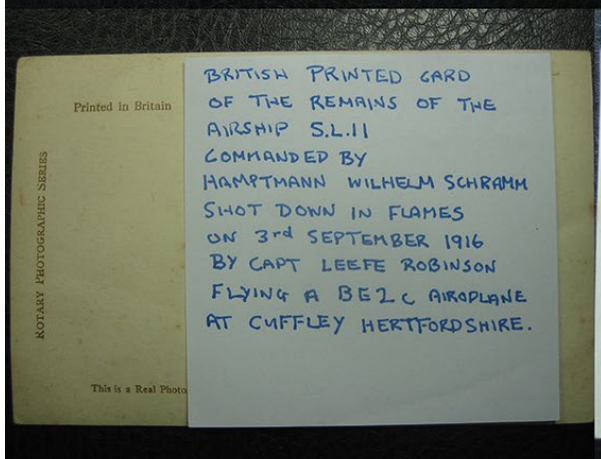 Printed in Britain
ROTARY PHOTOGRAPHIC SERIES
This is a Real Photo
BRITISH PRINTED CARD
OF THE REMAINS OF THE
AIRSHIP S.L.11
COMMANDED BY
HAMPTMANN WILHELM SCHRAMM
SHOT DOWN IN FLAMES
ON 3rd SEPTEMBER 1916
BY CAPT LEEFE ROBINSON
FLYING A BE2c AIROPLANE
AT CUFFLEY HERTFORDSHIRE.